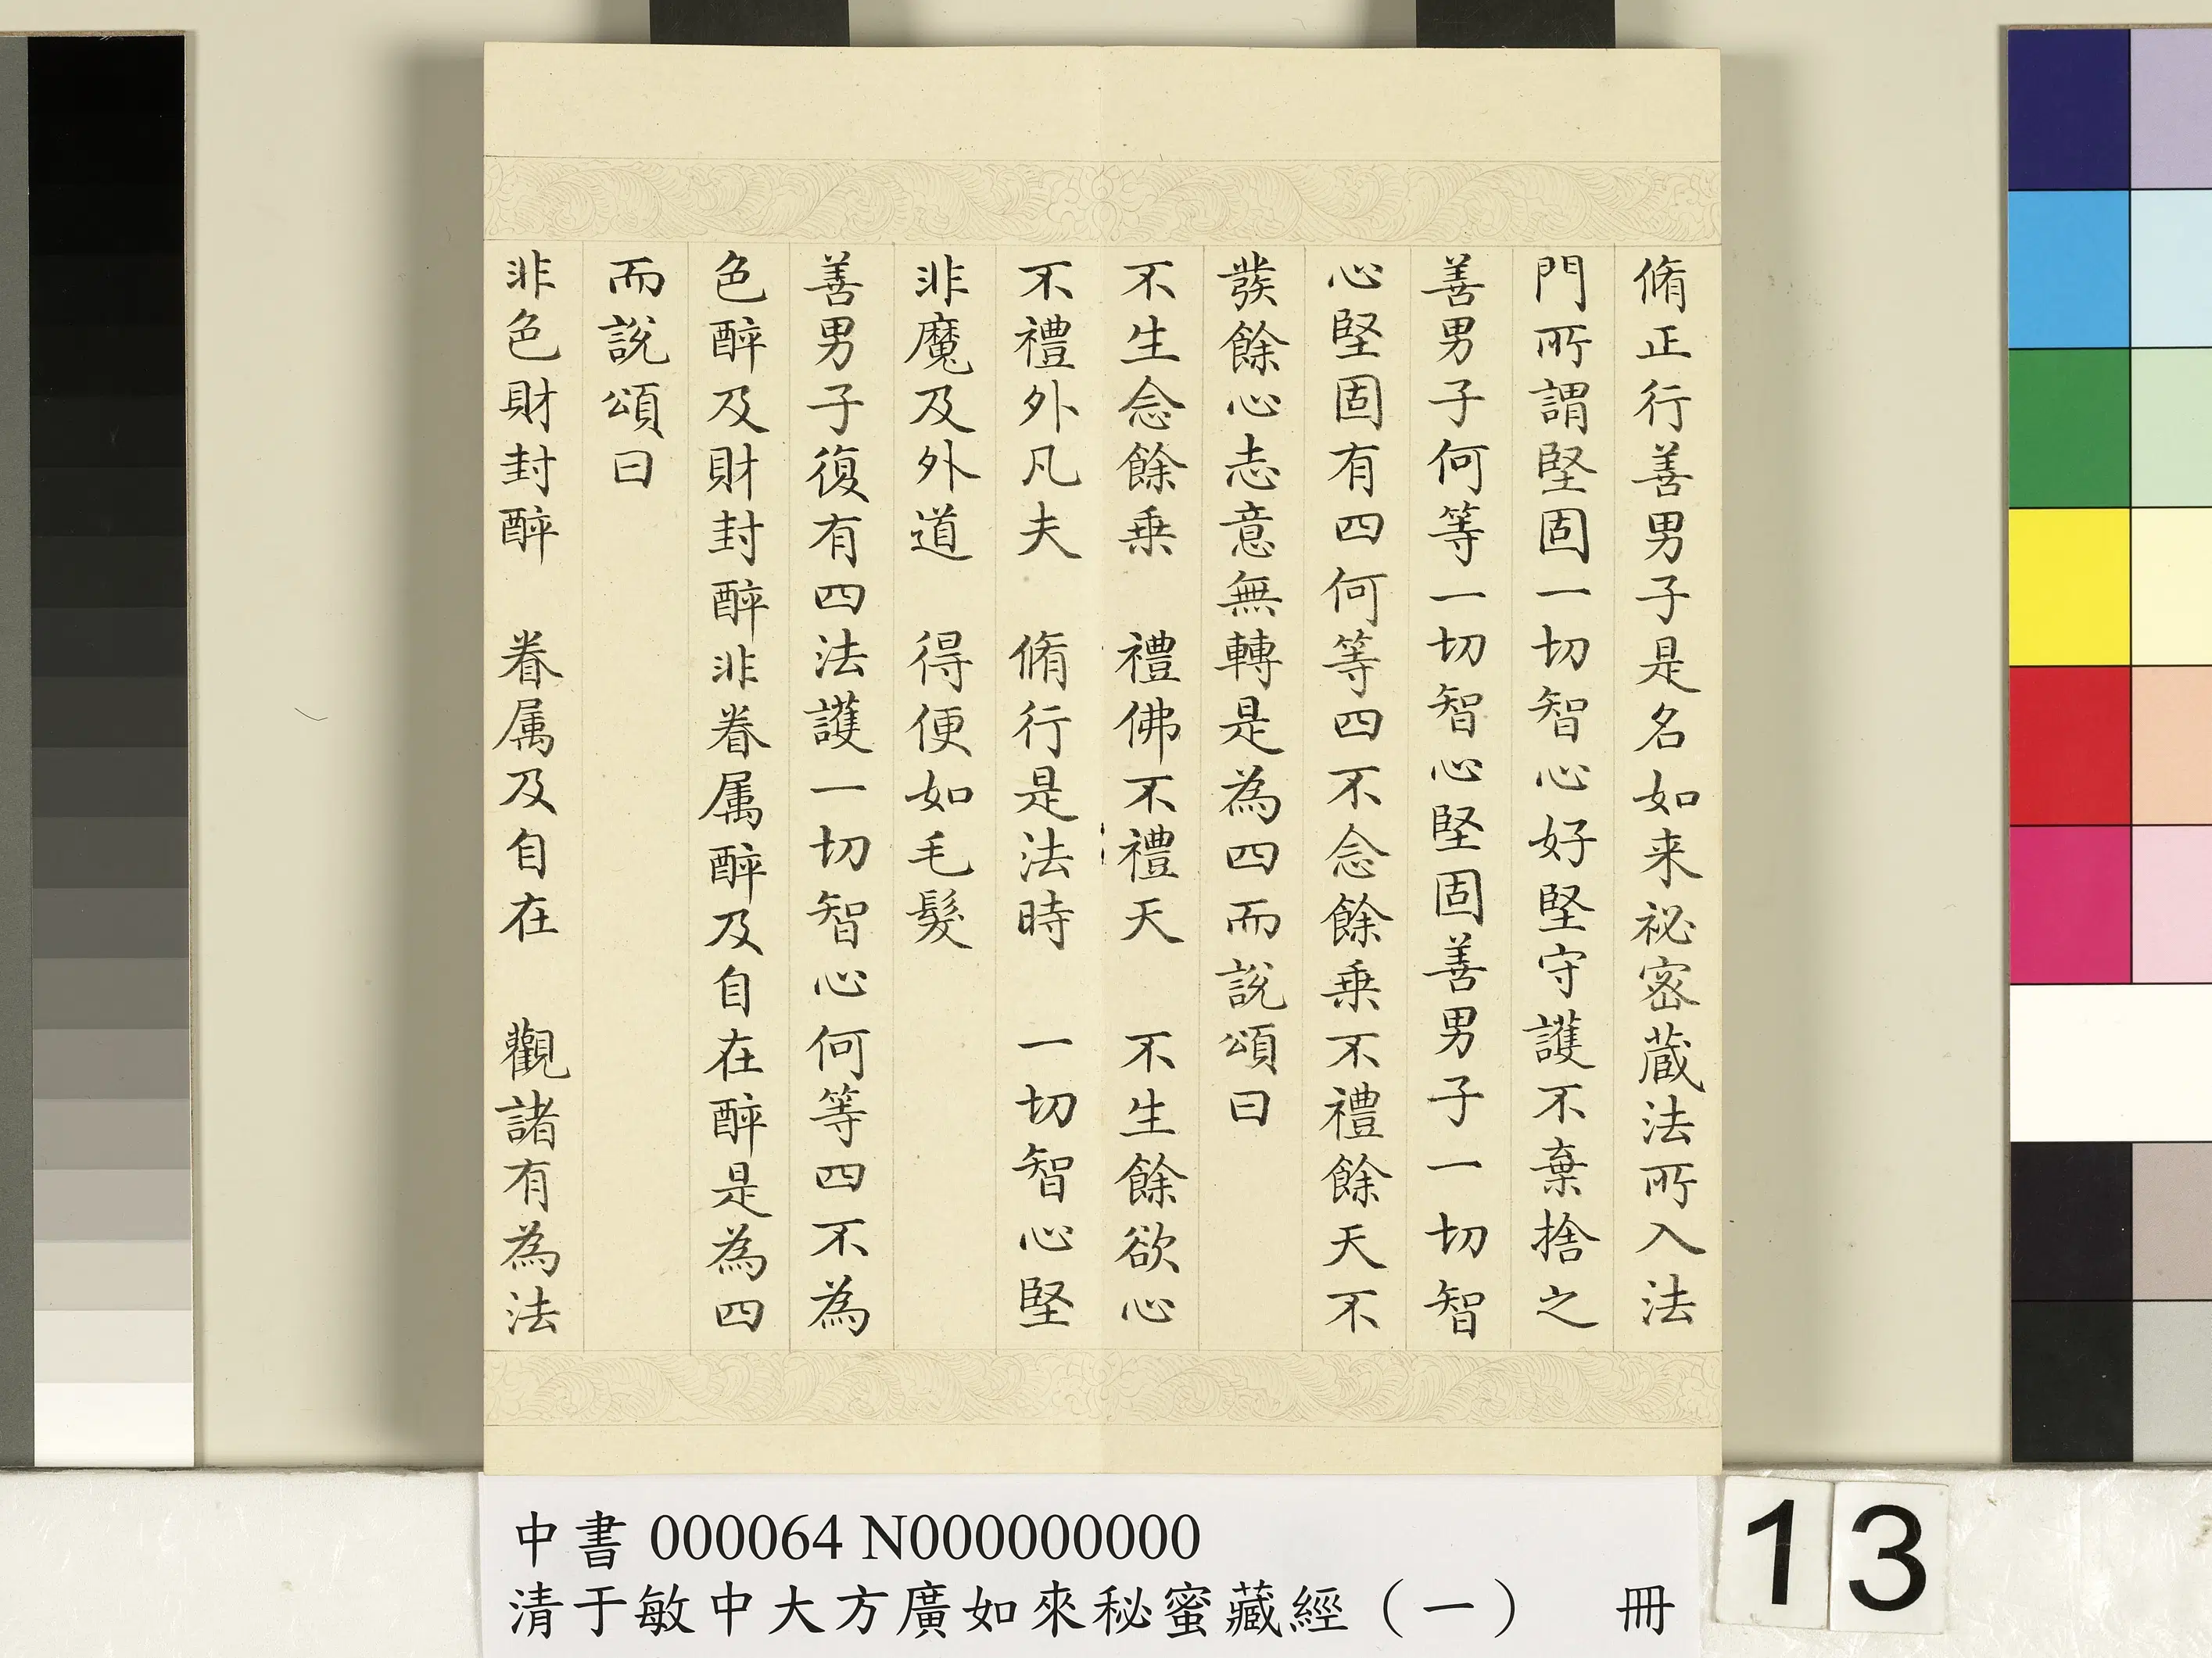 脩正行善男子是名如来祕密蔵法所入法
門所謂堅固一切智心好堅守護不棄捨之
善男子何等一切智心堅固善男子一切智
心堅固有四何等四不念餘乗不禮餘天不
發餘心志意無轉是為四而說頌曰
不生念餘乗　禮佛不禮天　不生餘欲心
不禮外凡夫　脩行是法時　一切智心堅
非魔及外道　得便如毛髮
善男子復有四法護一切智心何等四不為
色醉及財封醉非眷属醉及自在醉是為四
而說頌曰
非色財封醉　眷属及自在　觀諸有為法
中書 000064 N000000000
清于敏中大方廣如來秘蜜藏經（一）　冊
13